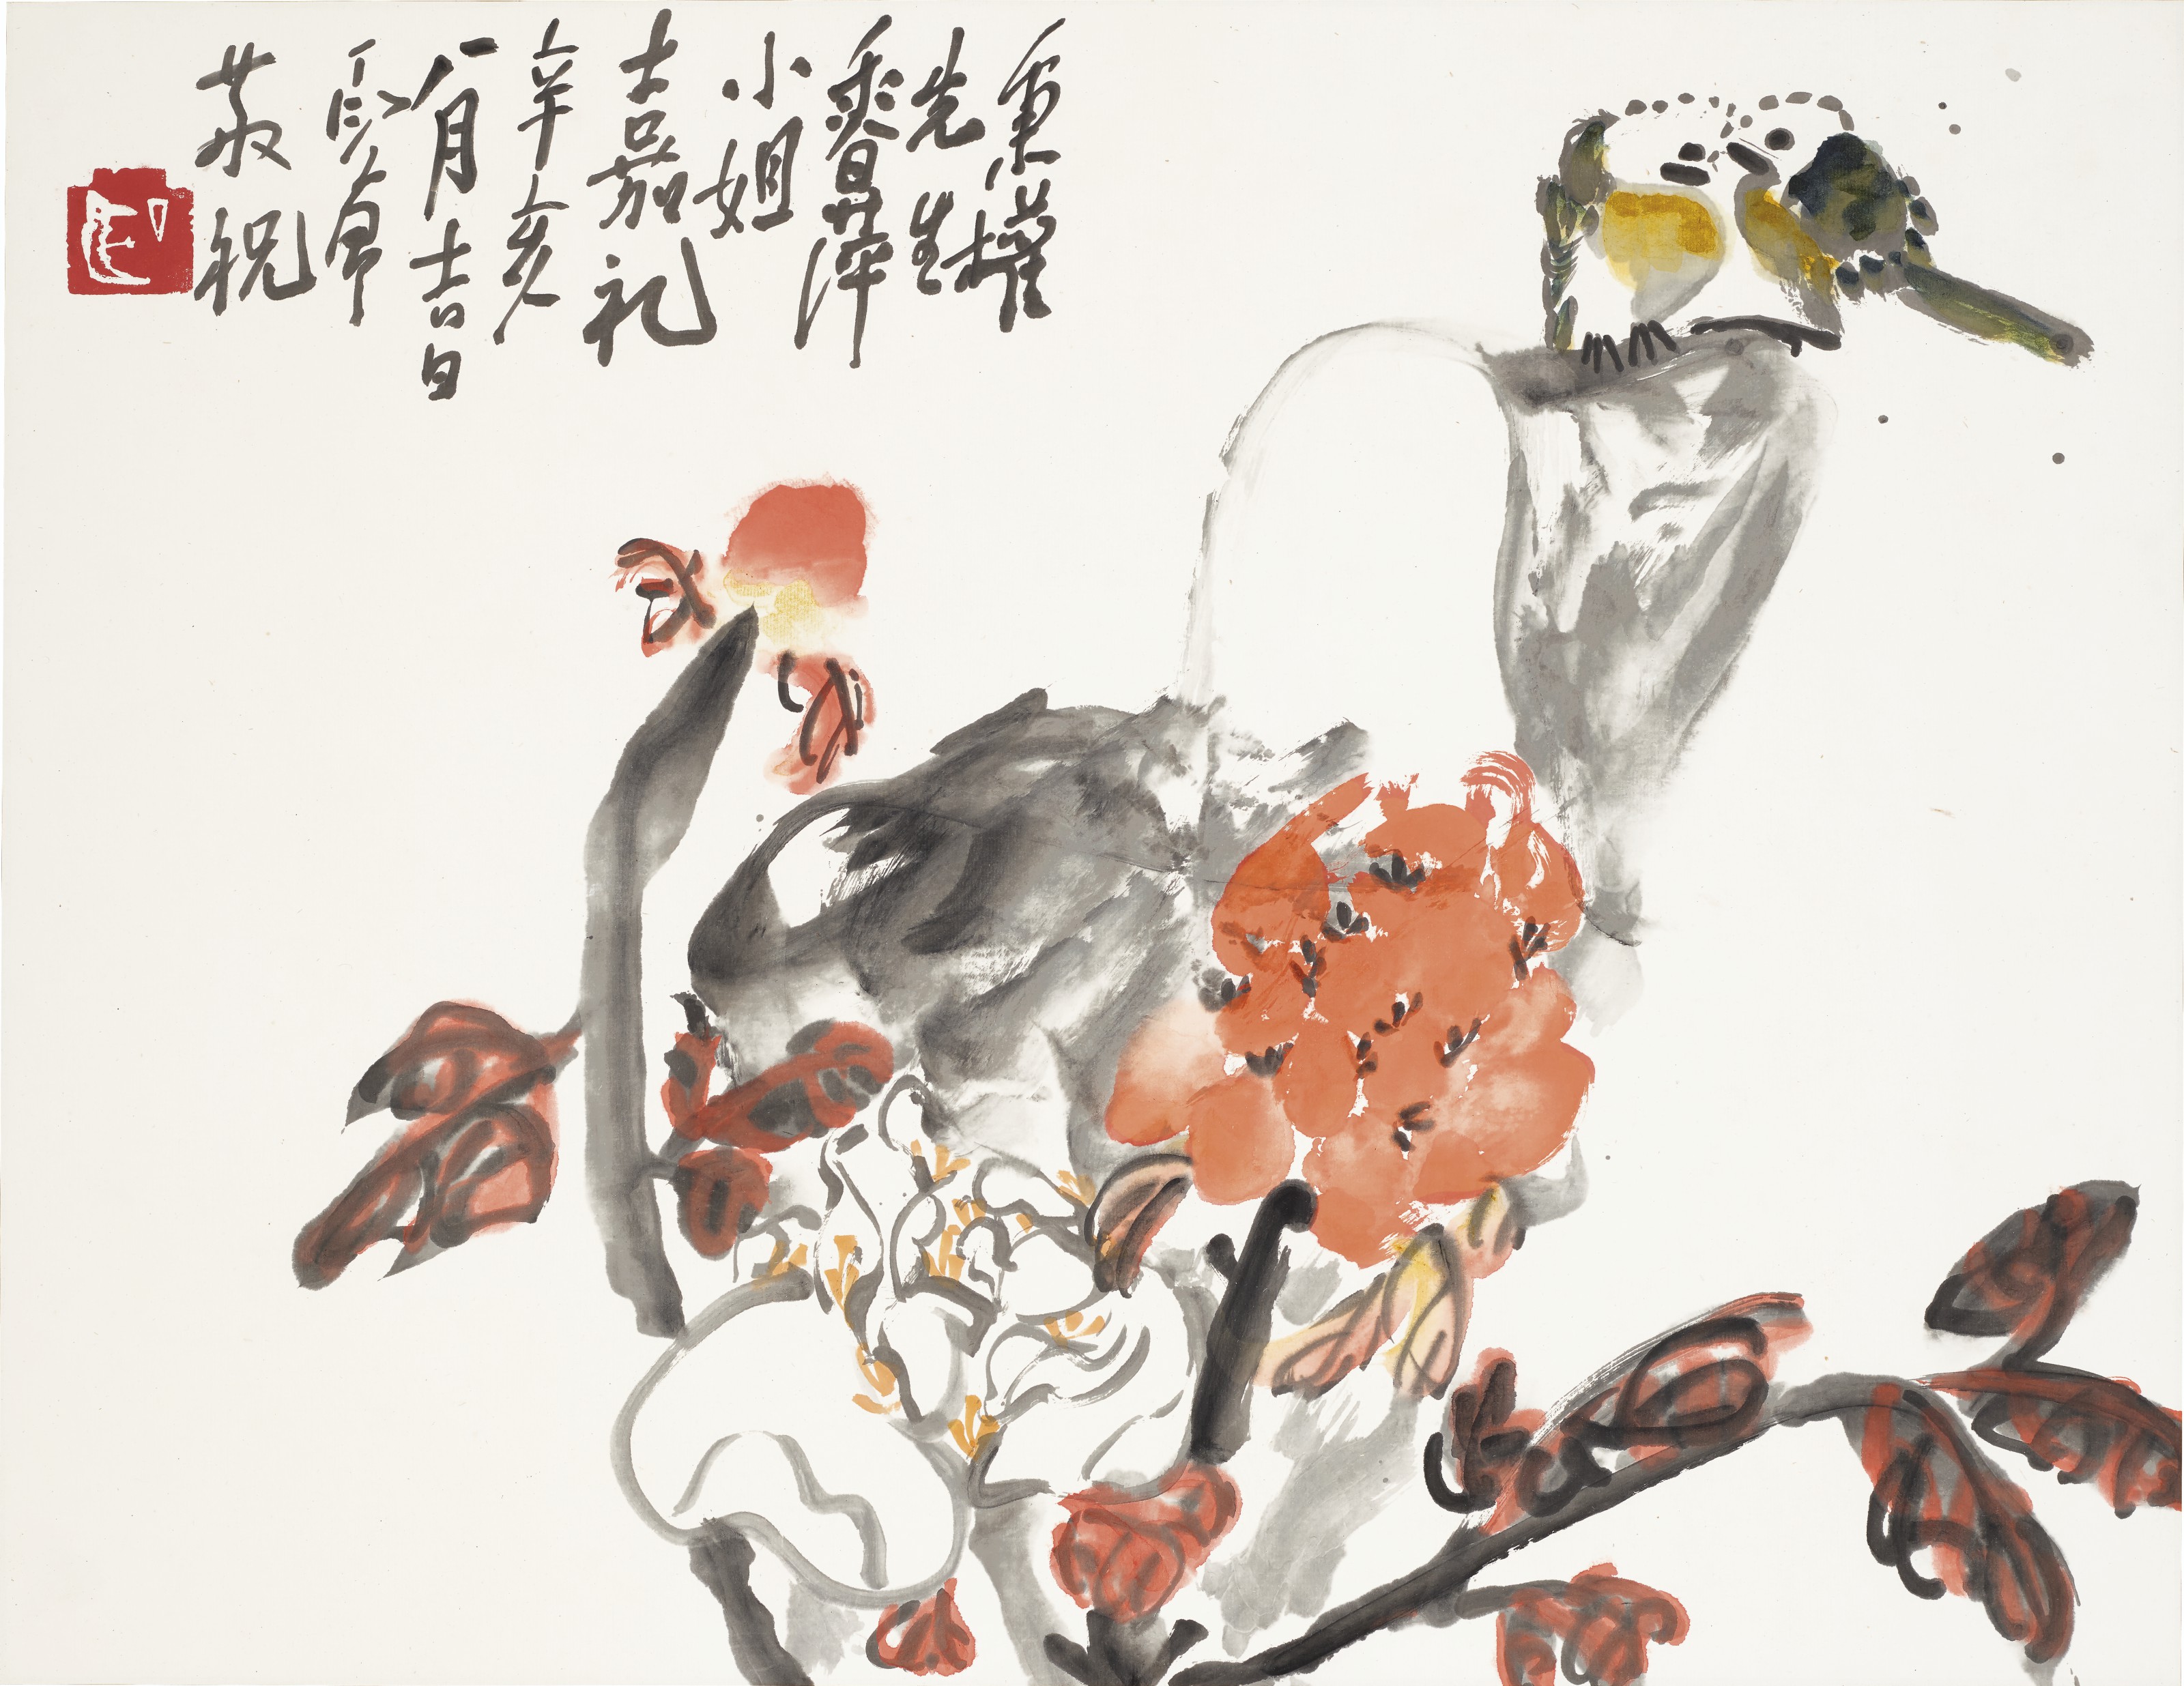 秉權
先生
萍
小姐
嘉礼
辛亥
八月吉日
丁衍庸
敬祝